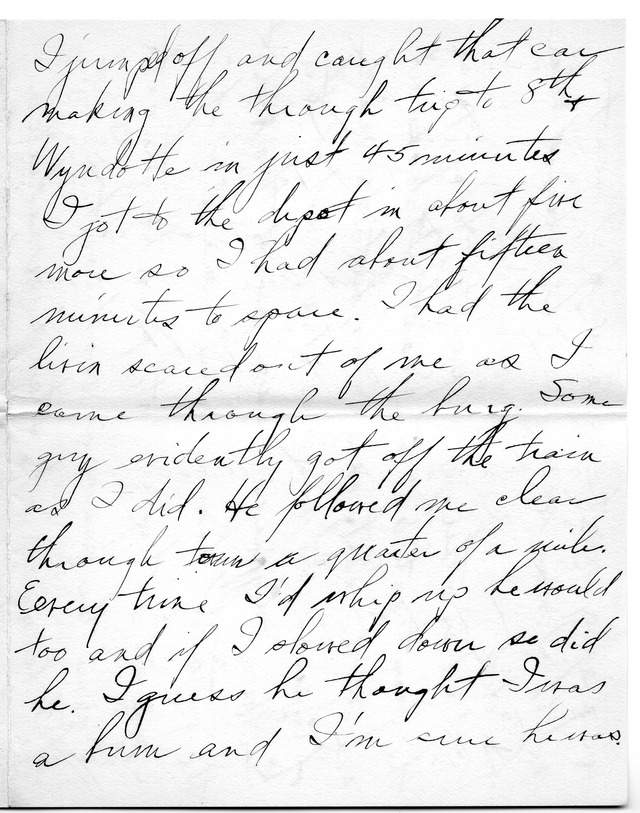 I jumped off and caught that car
making the through trip to 8th +
Wyndotte in just 45 minutes
I got to the depot in about five
more so I had about fifteen
minutes to spare. I had the
livin scared out of me as I
came through the burg. Some
guy evidently got off the train
as I did. He followed me clear
through town a quarter of a mile.
Every time I'd whip up he would
too and if I slowed down so did
he. I guess he thought I was
a bum and I'm sure he was.